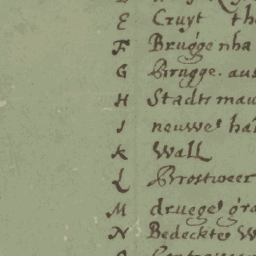 E Cruyt th
F Bruggenha
G Brugge. aus
H Stadts mau
I neuwes ha
K Wall
L Brostweer
M drueges gra
N Bedecktes W